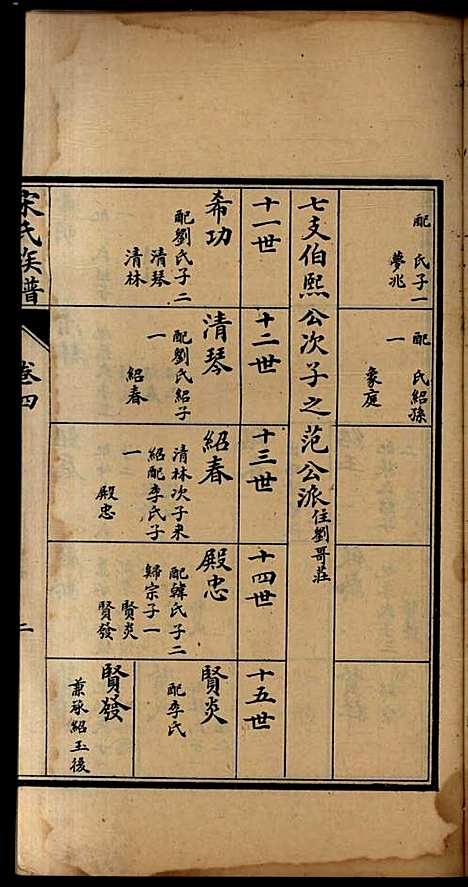 配　氏子一
夢兆
配　氏紹孫
一
象庭
七支伯熙公次子之范公派住劉哥莊
十一世
十二世
十三世
十四世
十五世
希功
配劉氏子二
清琴
清林
清琴
配劉氏紹子
一
紹春
紹春
清林次子來
紹配李氏子
一
殿忠
殿忠
配韓氏子二
歸宗子一
賢炎
賢發
賢炎
配李氏
賢發
兼承紹玉後
宋氏族譜
卷四
二